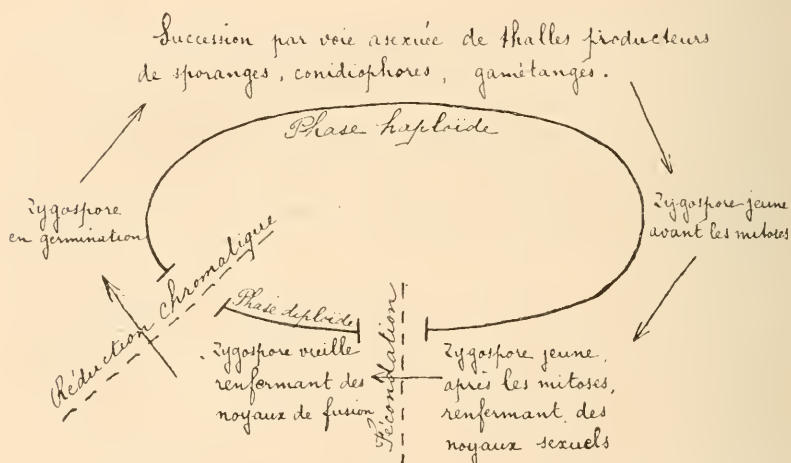 Succession par voie asexuée de thalles producteurs
de sporanges, conidiophores, gamétanges.
Phase haploïde
Zygospore
en germination
Zygospore jeune
avant les mitoses
Réduction chromatique
Phase diploïde
Fécondation
Zygospore vieille
renfermant des
noyaux de fusion
Zygospore jeune,
après les mitoses,
renfermant des
noyaux sexuels